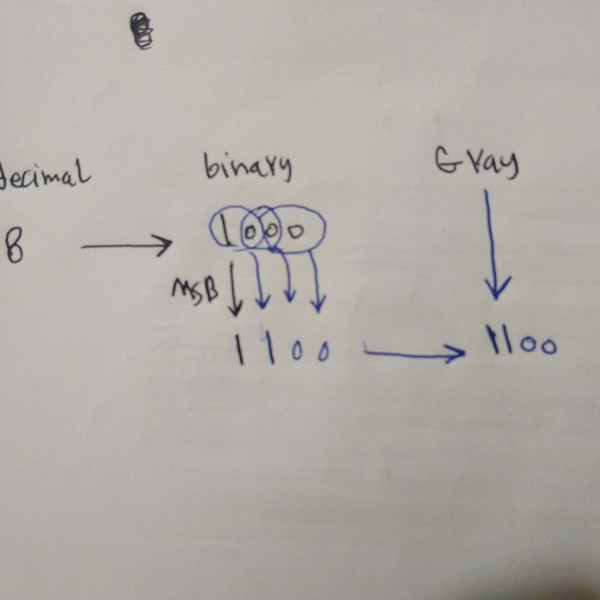 decimal binary Gray
8 → 1000
MSB
1100 → 1100